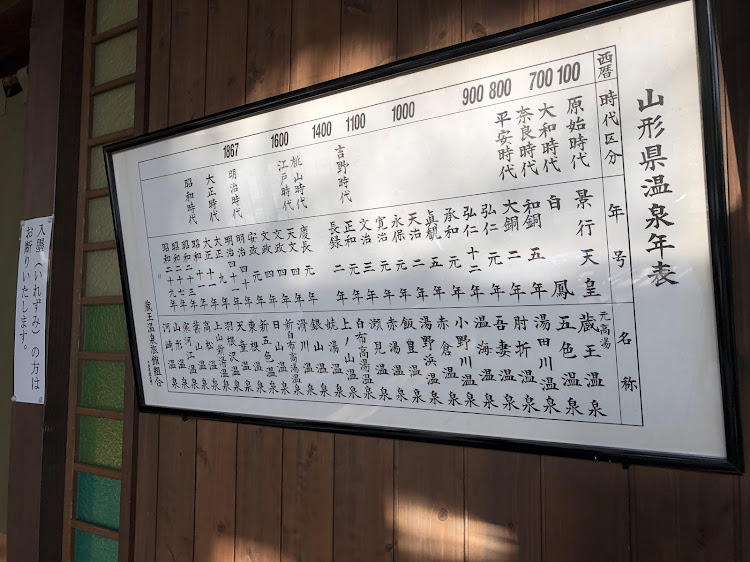 山形県温泉年表
西暦
時代区分
年号
名称
100
700
800
900
1000
1100
1400
1600
1867
原始時代
大和時代
奈良時代
平安時代
吉野時代
桃山時代
江戸時代
明治時代
大正時代
昭和時代
景行天皇
白鳳
和銅五年
大銅二年
弘仁年
弘仁十二年
承和元年
貞観五年
天治二年
永保元年
寛治二年
文治三年
正和元年
長録二年
慶長元年
天文年
文政年
文政元年
安政元年
明治四十年
明治四十四年
大正九年
大正十一年
昭和二年
昭和二十年
昭和二十九年
元高湯
蔵王温泉
五色温泉
湯田川温泉
肘折温泉
吾妻温泉
温海温泉
小野川温泉
赤倉温泉
湯野浜温泉
飯豊温泉
赤湯温泉
瀬見温泉
白布高湯温泉
上ノ山温泉
姥湯温泉
銀山温泉
滑川温泉
新布高湯温泉
日山温泉
新五色温泉
東根温泉
天童温泉
羽根沢温泉
上山新湯温泉
高松温泉
葉山温泉
寒河江温泉
山形温泉
河崎温泉
蔵王温泉旅館組合
入墨(いれずみ)の方は
お断りいたします。